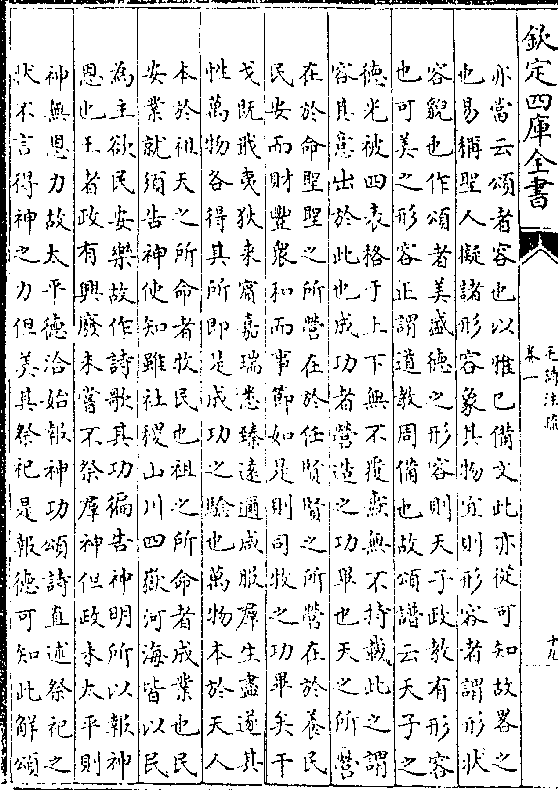 欽定四庫全書
毛詩注疏
卷一
十九
亦當云頌者容也以雅已備文此亦從可知故畧之
也易稱聖人擬諸形容象其物宜則形容者謂形狀
容貌也作頌者美盛德之形容則天子政教有形容
也可美之形容正謂道教周備也故頌譜云天子之
德光被四表格于上下無不覆燾無不持載此之謂
容其意出於此也成功者營造之功畢也天之所營
在於命聖聖之所營在於任賢賢之所營在於養民
民安而財豐衆和而事節如是則司牧之功畢矣干
戈既戢夷狄來賓嘉瑞悉臻遠邇咸服羣生盡遂其
性萬物各得其所即是成功之驗也萬物本於天人
本於祖天之所命者牧民也祖之所命者成業也民
安業就須告神使知雖社稷山川四嶽河海皆以民
為主欲民安樂故作詩歌其功徧告神明所以報神
恩也王者政有興廢未嘗不祭羣神但政未太平則
神無恩力故太平德洽始報神功頌詩直述祭祀之
狀不言得神之力但美其祭祀是報德可知此解頌